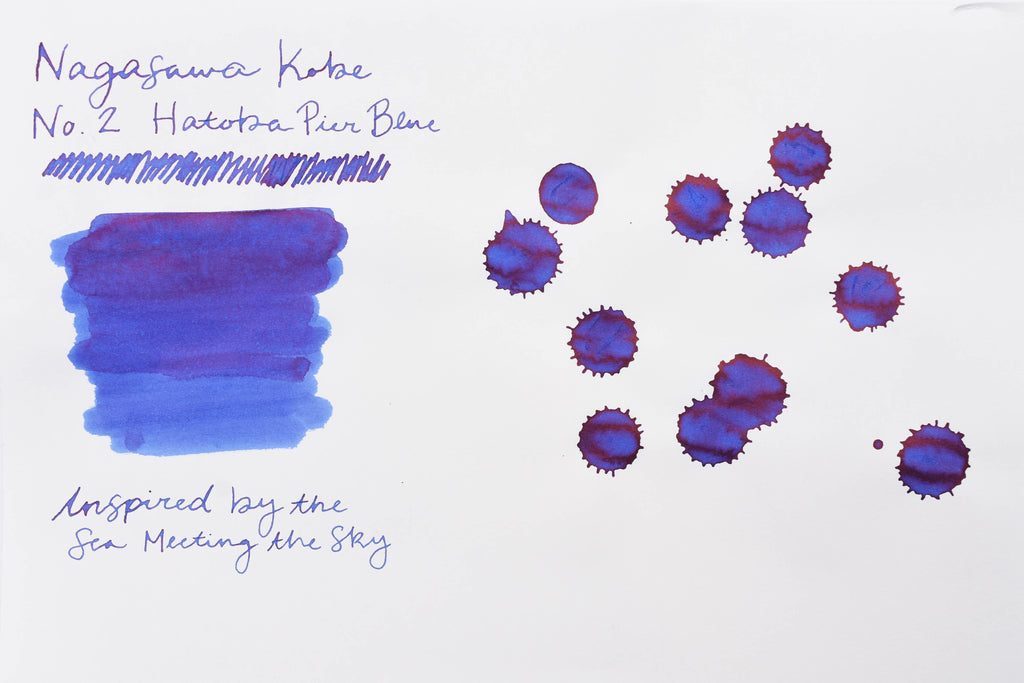 Nagasawa Kobe
No. 2 Hatoba Pier Blue
Inspired by the
Sea Meeting the Sky